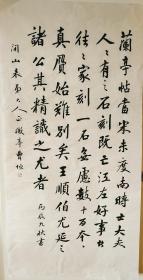 蘭亭帖當宋未度南時士大夫
人人有之石刻既亡江左好事者
往往家刻一石無慮數十百本而
真贋始難別矣王順伯尤延之
諸公其精識之尤者